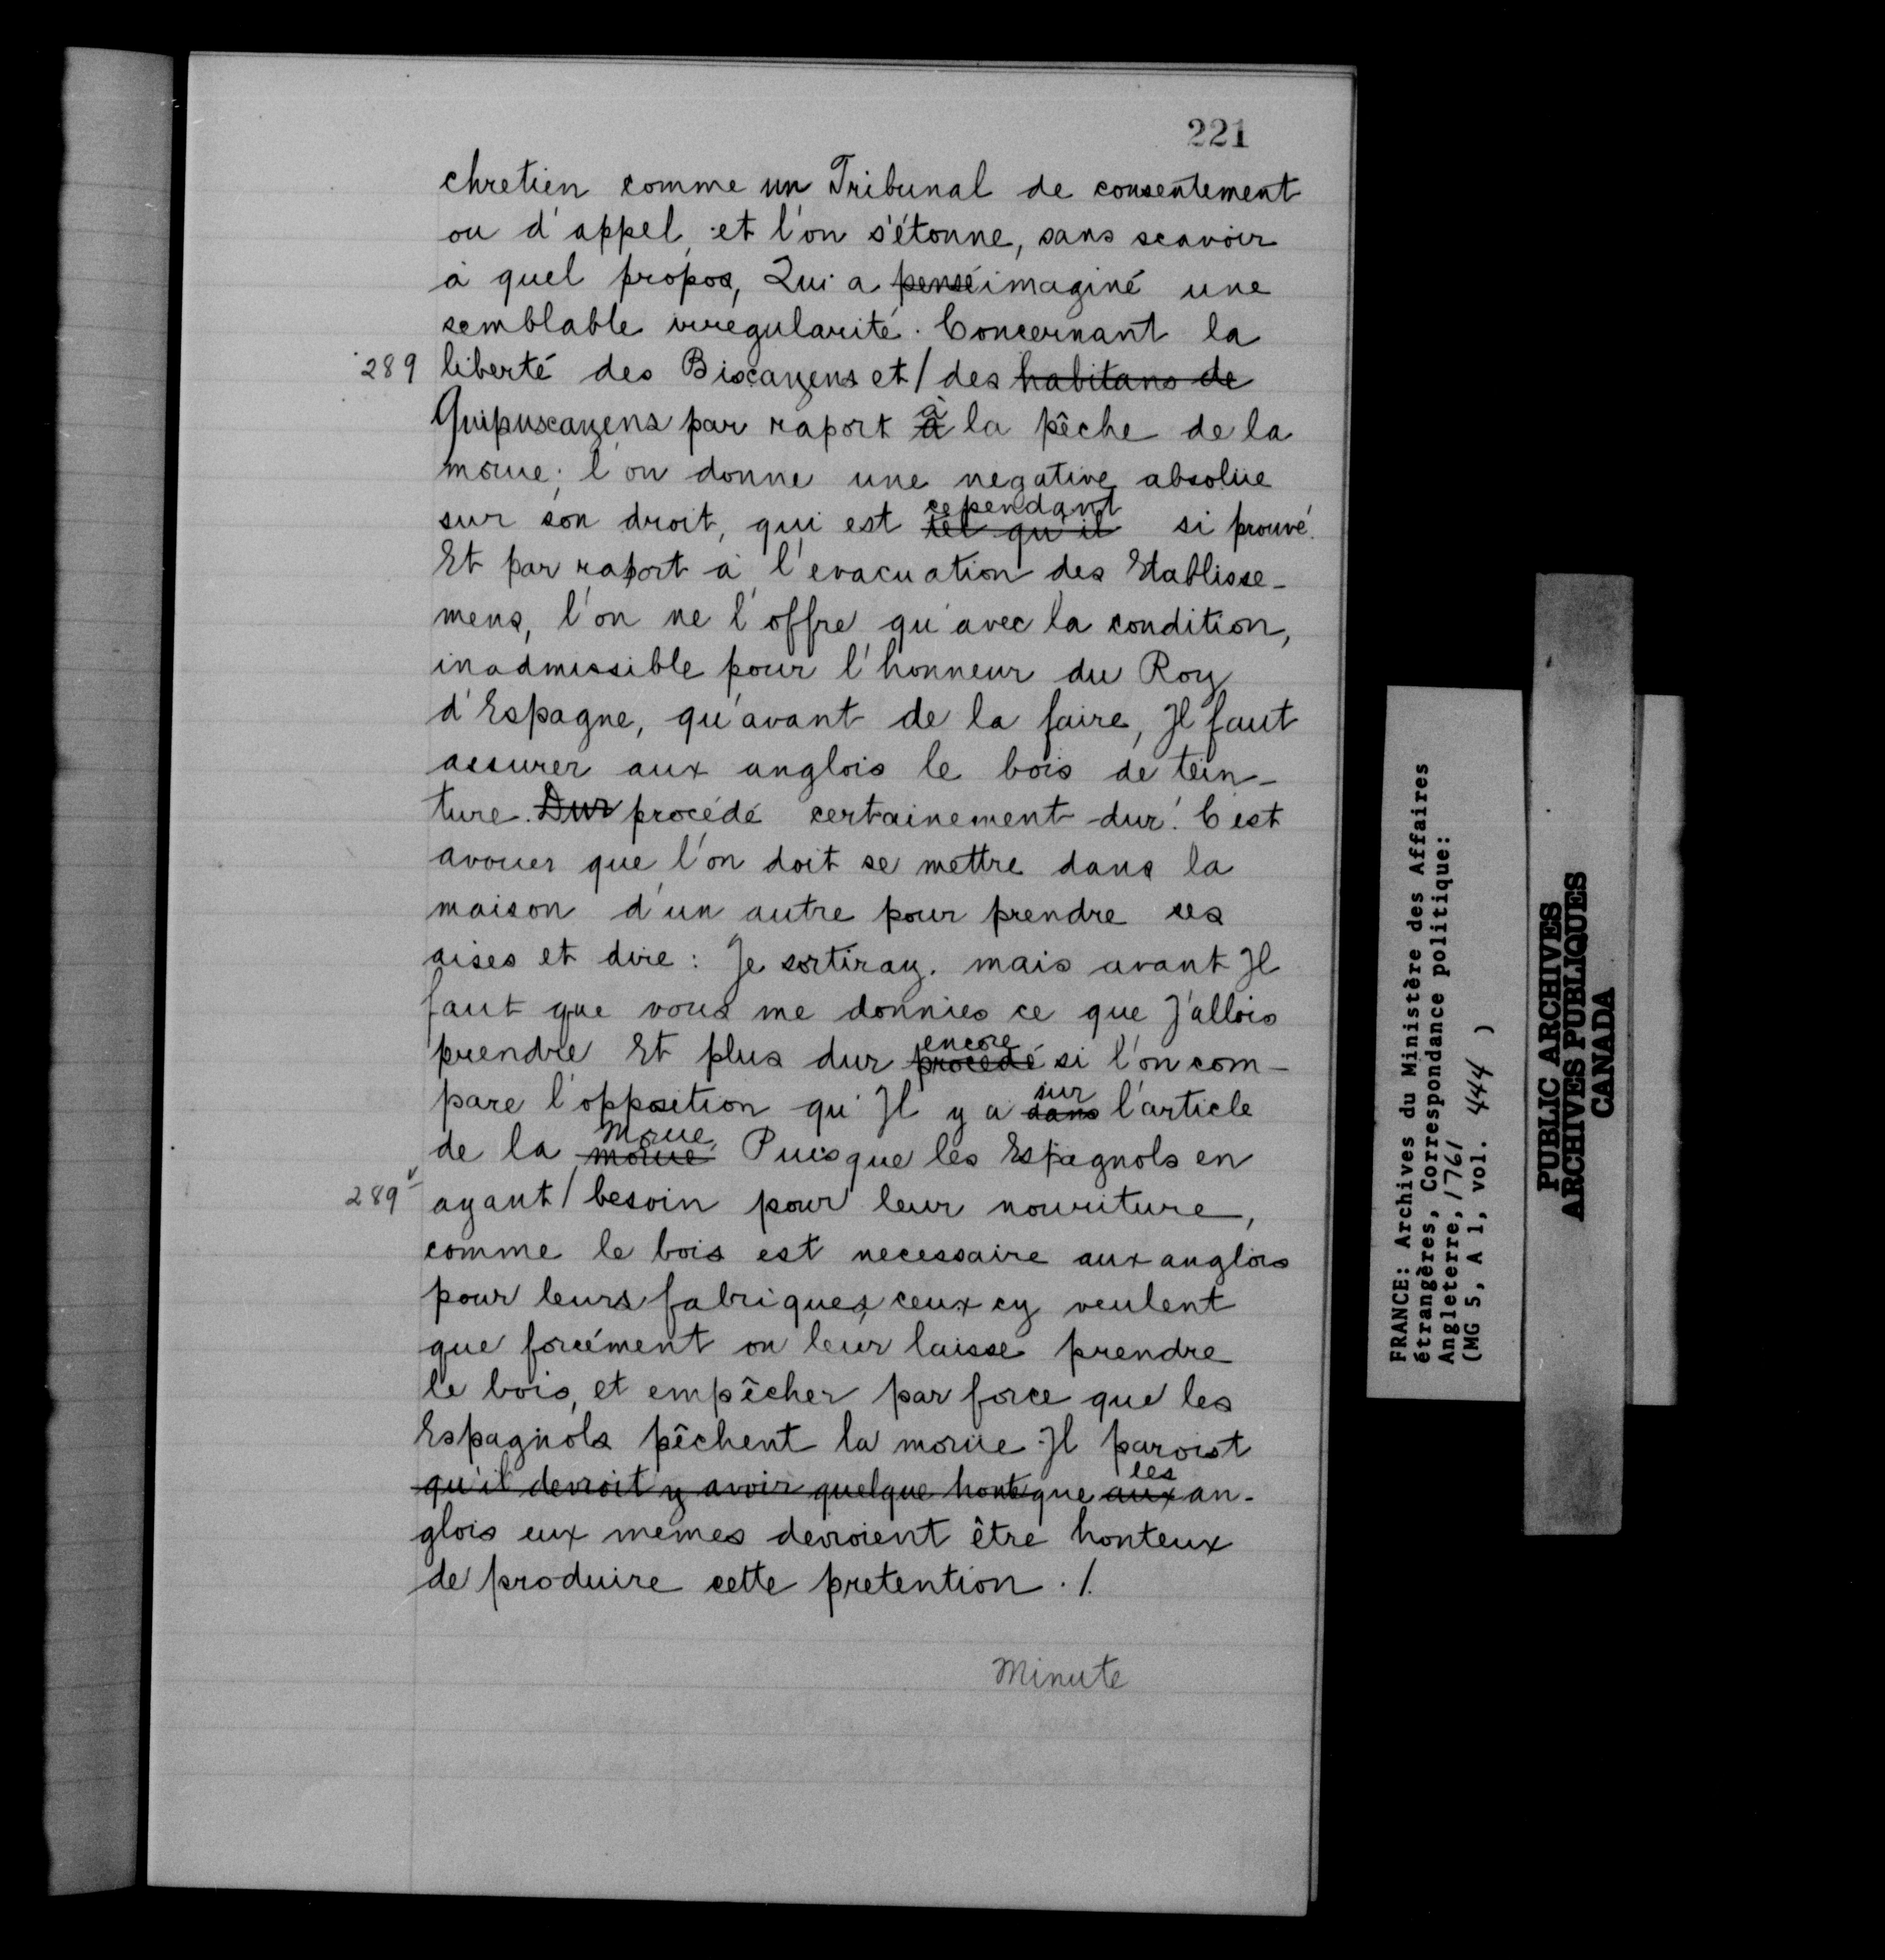 221
chretien comme un Tribunal de consentement
ou d'appel, et l'on s'étonne, sans scavoir
à quel propos, Qui a pensé imaginé une
semblable irregularité. Concernant la
289 liberté des Biscayens et / des habitans de
Guipuscayens par raport à à la pêche de la
morüe; l'on donne une negative absolüe
cependant
sur son droit, qui est tel qu'il si prouvé.
Et par raport à l'evacuation des Etablisse-
mens, l'on ne l'offre qu'avec la condition,
inadmissible pour l'honneur du Roy
d'Espagne, qu'avant de la faire, Il faut
assurer aux anglois le bois de tein-
ture. Dur procédé certainement dur! C'est
avouer que l'on doit se mettre dans la
maison d'un autre pour prendre ses
aises et dire: Je sortiray. mais avant Il
faut que vous me donnies ce que J'allois
encore
prendre Et plus dur procédé si l'on com-
sur
pare l'opposition qu'Il y a dans l'article
Morue
de la morue Puisque les Espagnols en
289v ayant / besoin pour leur nouriture,
comme le bois est necessaire aux anglois
pour leurs fabriques, ceux cy veulent
que forcément on leur laisse prendre
le bois, et empêcher par force que les
Espagnols pêchent la morüe. Il paroist
les
qu'il devroit y avoir quelque honte que aux an-
glois eux memes devroient être honteux
de produire cette pretention ./.
Minute
FRANCE: Archives du Ministère des Affaires
étrangères, Correspondance politique:
Angleterre, 1761
(MG 5, A 1, vol. 444 )
PUBLIC ARCHIVES
ARCHIVES PUBLIQUES
CANADA